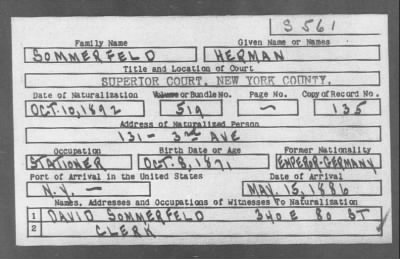 S 561
Family Name Given Name or Names
SOMMERFELD HERMAN
Title and Location of Court
SUPERIOR COURT, NEW YORK COUNTY.
Date of Naturalization Volume or Bundle No. Page No. Copy of Record No.
OCT. 10, 1892 519 — 135
Address of Naturalized Person
131 - 3RD AVE
Occupation Birth Date or Age Former Nationality
STATIONER OCT. 8, 1871 EMPEROR-GERMANY
Port of Arrival in the United States Date of Arrival
N.Y. — MAY. 15, 1886
Names, Addresses and Occupations of Witnesses To Naturalization
1 DAVID SOMMERFELD 340 E 80 ST
2 CLERK